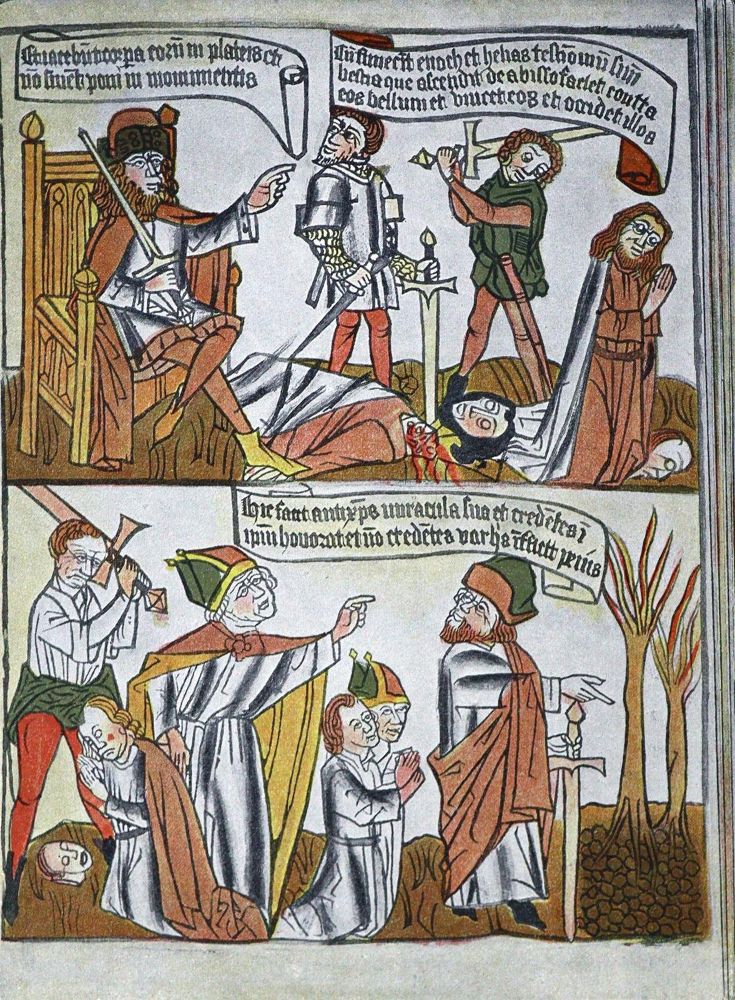 Et iacebūt corpa eorū in plateis et
nō sinēt poni in monumentis
Cū finierīt enoch et helias testīonīū suū
bestia que ascendit de abisso faciet contra
eos bellum et vincet eos et occidet illos
hic facit antixp̄s miracula sua et credētes ī
ipm̄ honorat et nō credētes varijs īterficit penis